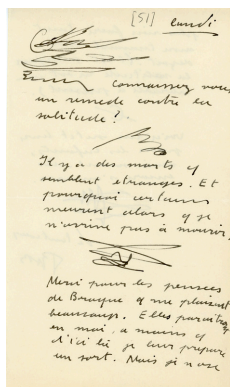 [51] lundi
connaissez vous
un remede contre la
solitude ?
Il y a des morts q
semblent etranges. Et
pourquoi certains
meurent alors q je
n'arrive pas à mourir.
Merci pour les pensees
de Braque q me plaisent
beaucoup. Elles paraitront
en mai, a moins q
d'ici là je leur prepare
un sort. Mais je n'ose